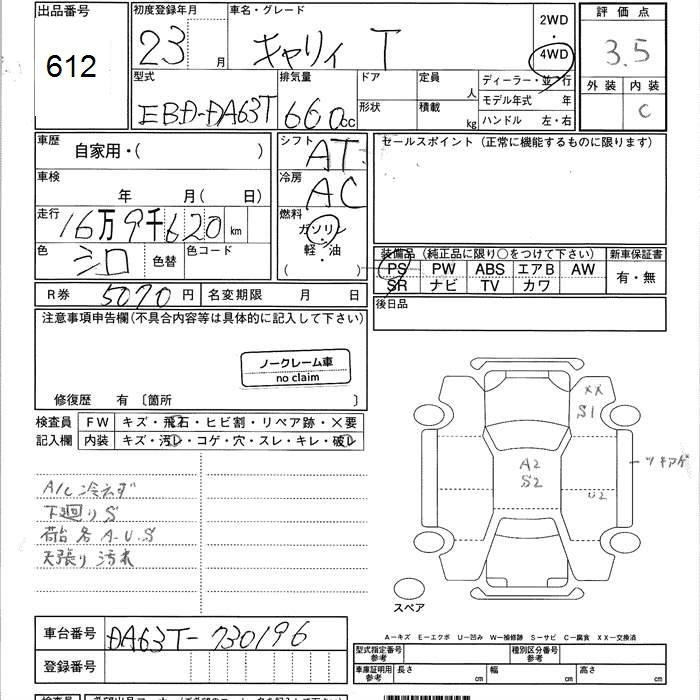 出品番号
612
初度登録年月
23 月
車名・グレード
キャリィ T
2WD
・
4WD
評価点
3.5
外装 内装
C
型式
EBD-DA63T
排気量
660cc
ドア
形状
定員
人
積載
kg
ディーラー・並行
モデル年式 年
ハンドル 左・右
車歴
自家用・( )
車検
年 月(日)
走行
16万9千620km
色
シロ
色替
色コード
シフト
AT
冷房
AC
燃料
ガソリン
軽・油
( )
セールスポイント(正常に機能するものに限ります)
装備品(純正品に限り○をつけて下さい)
新車保証書
PS PW ABS エアB AW
SR ナビ TV カワ
有・無
R券 5070円
名変期限 月 日
後日品
注意事項申告欄(不具合内容等は具体的に記入して下さい)
ノークレーム車
no claim
修復歴 有〔箇所 〕
検査員
記入欄
FW キズ・飛石・ヒビ割・リペア跡・×要
内装 キズ・汚レ・コゲ・穴・スレ・キレ・破レ
A/C 冷えず
下廻りS
荷台 各 A・U・S
天張り 汚れ
XX
S1
A2
S2
U2
ツキアゲ
スペア
車台番号
DA63T-730196
登録番号
A―キズ E―エクボ U―凹み W―補修跡 S―サビ C―腐食 XX―交換済
型式指定番号
参考
種別区分番号
参考
車庫証明用
参考
長さ cm
幅 cm
高さ cm